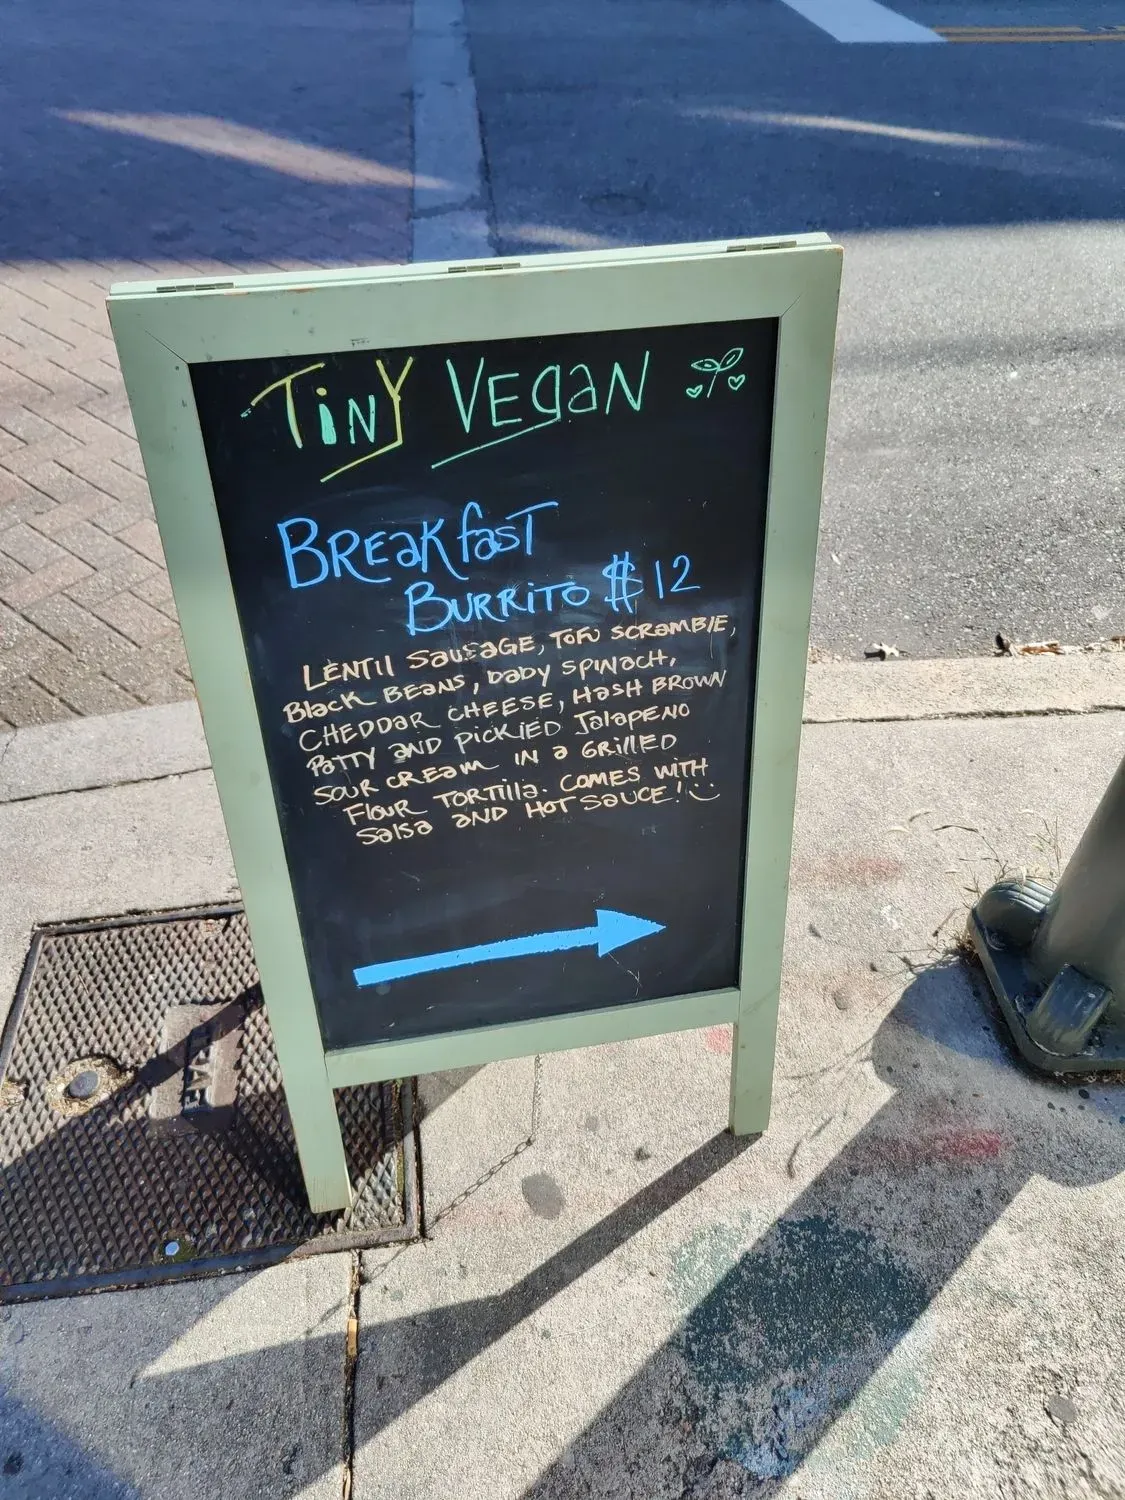 TiNY VEgaN
BREaKfasT
BURRiTO $12
LENTil SauSaGE, TOFU SCRamBlE,
Black BEaNS, baby SPiNach,
CHEDDaR CHEESE, HaSH BROWN
PaTTY aND PiCKlED JalaPENO
SOUR CREam IN a GRillED
FlOUR TORTilla. COMES WiTH
Salsa aND HOT SaUCE!